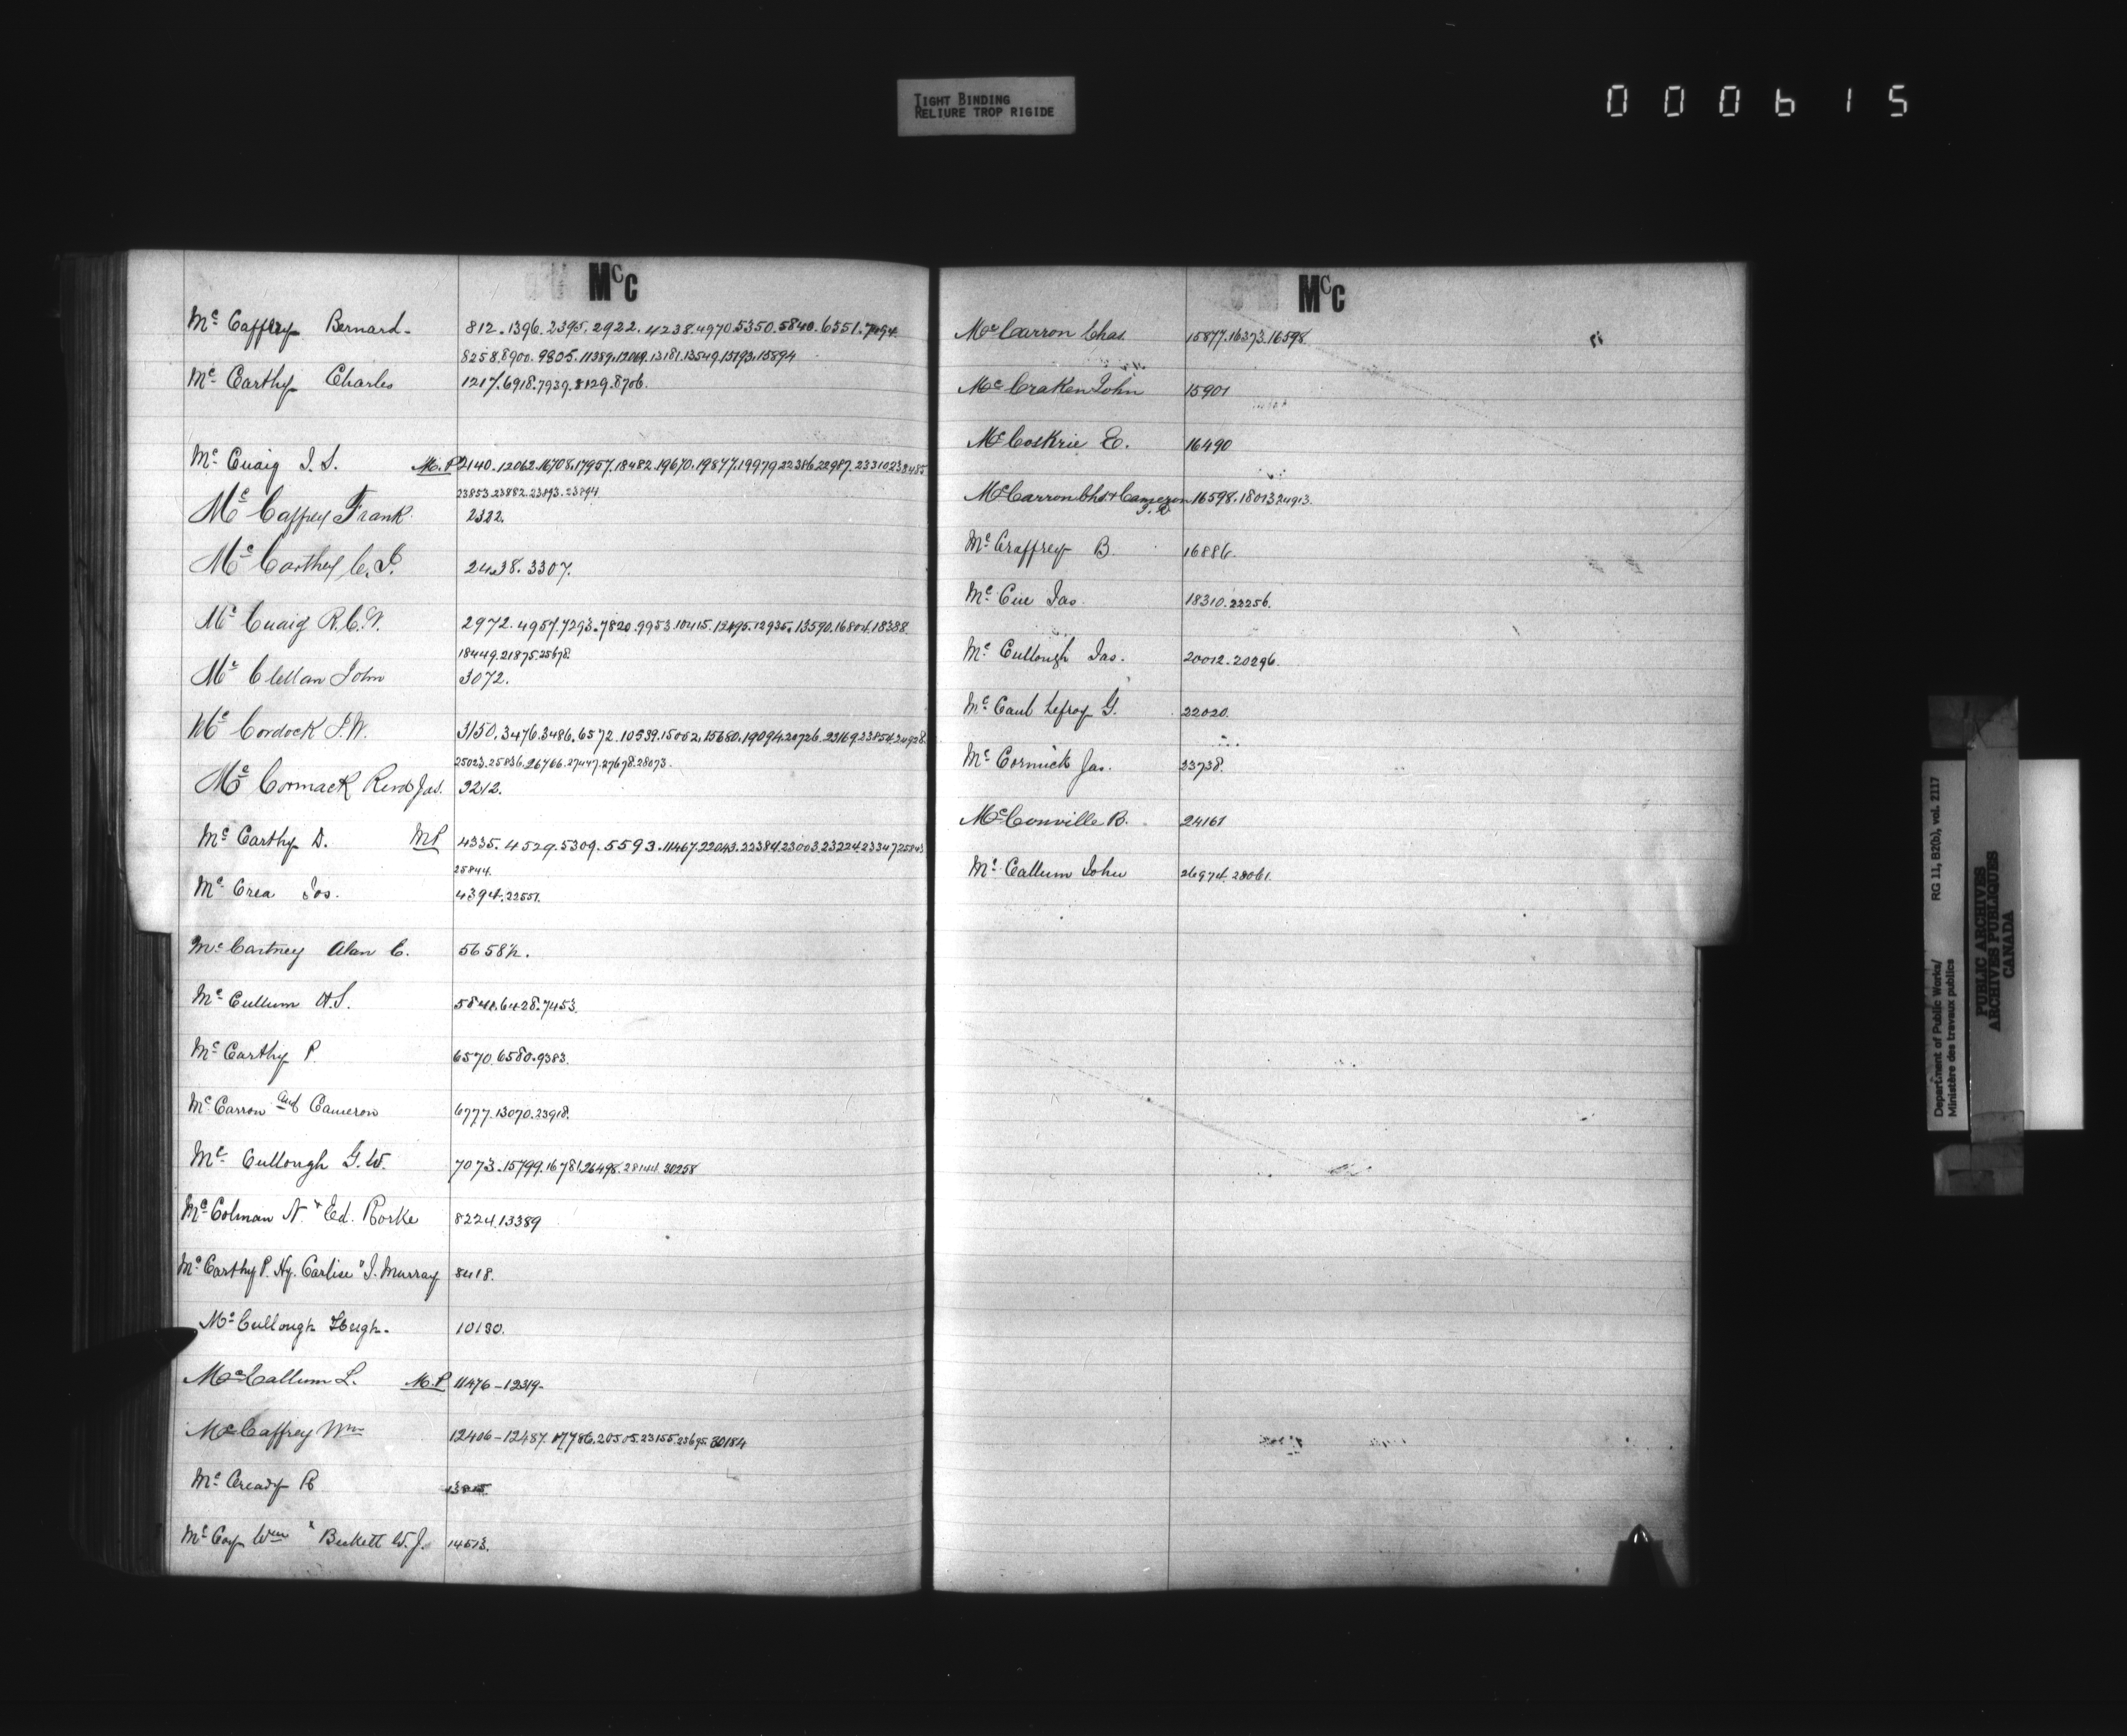 TIGHT BINDING
RELIURE TROP RIGIDE
000615
McC
Mc Caffrey Bernard. 812.1396.2395.2922.4238.4970.5350.5840.6351.7494.
8258.8900.9305.11389.12069.13181.13549.15193.15894
Mc Carthy Charles 1217.6918.7939.8129.8706.
Mc Cuaig J. S. M.P. 2140.12062.16708.17957.18482.19670.19877.19979.22386.22987.23310.23485
23853.23882.23893.23894
Mc Caffrey Frank. 2322.
Mc Carthy C. J. 2438.3307.
Mc Cuaig R.C.W. 2972.4957.7293.7820.9953.10415.12495.12935.13590.16804.18388.
18449.21875.25678.
Mc Clellan John 3072.
Mc Cordock S.W. 3150.3476.3486.6572.10539.15062.15680.19094.20726.23169.23854.24928.
25023.25836.26766.27447.27678.28073.
Mc Cormack Revd Jas. 3212.
Mc Carthy D. MP 4335.4529.5309.5593.11467.22043.22384.23003.23224.23347.25843
25844.
Mc Crea Jos. 4394.22551.
Mc Cartney Alan C. 5658½.
Mc Cullum A.S. 5841.6428.7453.
Mc Carthy P. 6570.6580.9383.
Mc Carron and Cameron 6777.13070.23918.
Mc Cullough G.W. 7073.15799.16781.26498.28144.30258
Mc Colman N. & Ed. Rorke 8224.13389
Mc Carthy P. Hy. Carlise & J. Murray 8418.
Mc Cullough Hugh. 10130.
Mc Callum L. M.P. 11476-12319-
Mc Caffrey Wm 12406-12487.17786.20505.23155.23695.30184
Mc Cready R
Mc Coy Wm & Beckett W.J. 14513.
McC
Mc Carron Chas. 15877.16373.16598.
Mc Craken John 15901
Mc Coskrie E. 16490
Mc Carron Chs. & Cameron 16598.18013.24913.
J. D
Mc Craffrey B. 16886.
Mc Cue Jas. 18310.22256.
Mc Cullough Jas. 20012.20296.
Mc Caul Lefroy G. 22020.
Mc Cormick Jas. 23738.
Mc Conville B. 24161
Mc Callum John 26974.28061.
Department of Public Works/ RG 11, B2(b), vol. 2117
Ministère des travaux publics
PUBLIC ARCHIVES
ARCHIVES PUBLIQUES
CANADA